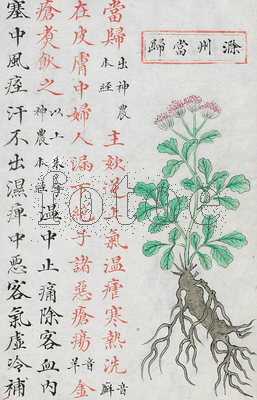 滁州當歸
當歸出神農本經主欬逆上氣溫瘧寒熱洗音蘚
在皮膚中婦人漏下絕子諸惡瘡瘍音羊金
瘡煑飲之以上朱字神農本經溫中止痛除客血內
塞中風痓汗不出濕痹中惡客氣虛冷補
fotoe